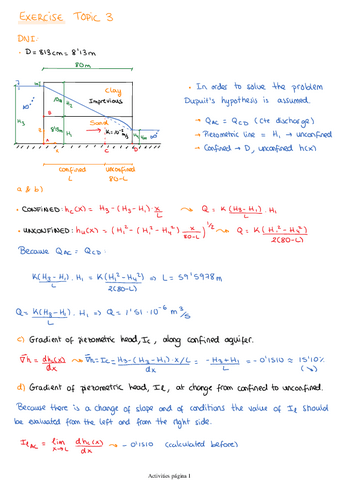 EXERCISE TOPIC 3
DNI:
· D = 813cm = 8'13m
80m
Clay
Impervious
Sand
H3
H1
Confined
L
Unconfined
80-L
· In order to solve the problem
Dupuit's hypothesis is assumed.
→ QAC = QCD (cte discharge)
→ Piezometric line = H1 → unconfined
→ Confined → D, unconfined h(x)
a & b)
· CONFINED: hc(x) = H3 - (H3 - H1) · x/L → Q = K (H3 - H1)/L · H1
· UNCONFINED: hu(x) = (H1² - (H1² - H4²) x/(80-L))^1/2 → Q = K (H1² - H4²)/2(80-L)
Because QAC = QCD:
K(H3 - H1)/L · H1 = K(H1² - H4²)/2(80-L) ⇒ L = 59'5978m
Q = K(H3 - H1)/L · H1 ⇒ Q = 1'51·10⁻⁶ m³/s
c) Gradient of piezometric head, Ic, along confined aquifer.
∇h = dh(x)/dx → ∇h = Ic = H3 - (H3 - H1) · x/L / dx = -H3 + H1 / L = -0'1510 ≈ 15'10%
d) Gradient of piezometric head, Il, at change from confined to unconfined.
Because there is a change of slope and of conditions the value of Il should
be evaluated from the left and from the right side.
IlAC = lim x→L dhc(x)/dx → -0'1510 (calculated before)
Activities página 1